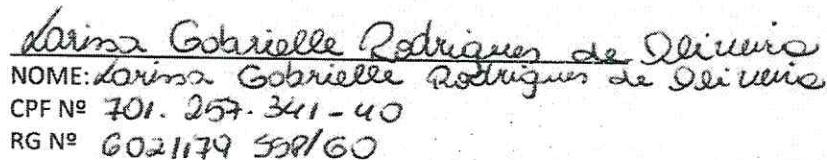 Larissa Gabrielle Rodrigues de Oliveira
NOME: Larissa Gabrielle Rodrigues de Oliveira
CPF Nº 701.257.341-40
RG Nº 6021179 SSP/GO